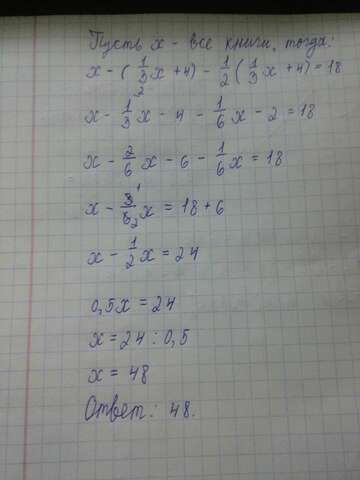 Пусть x - все книги, тогда:
x - (1/3 x + 4) - 1/2 (1/3 x + 4) = 18
x - 1/3² x - 4 - 1/6 x - 2 = 18
x - 2/6 x - 6 - 1/6 x = 18
x - 3¹/6₂ x = 18 + 6
x - 1/2 x = 24
0,5x = 24
x = 24 : 0,5
x = 48
Ответ: 48.